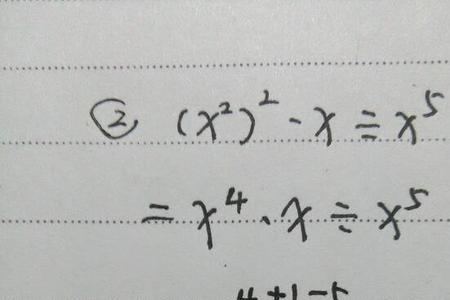 ② (x²)² · x ÷ x⁵
= x⁴ · x ÷ x⁵
4+1-5